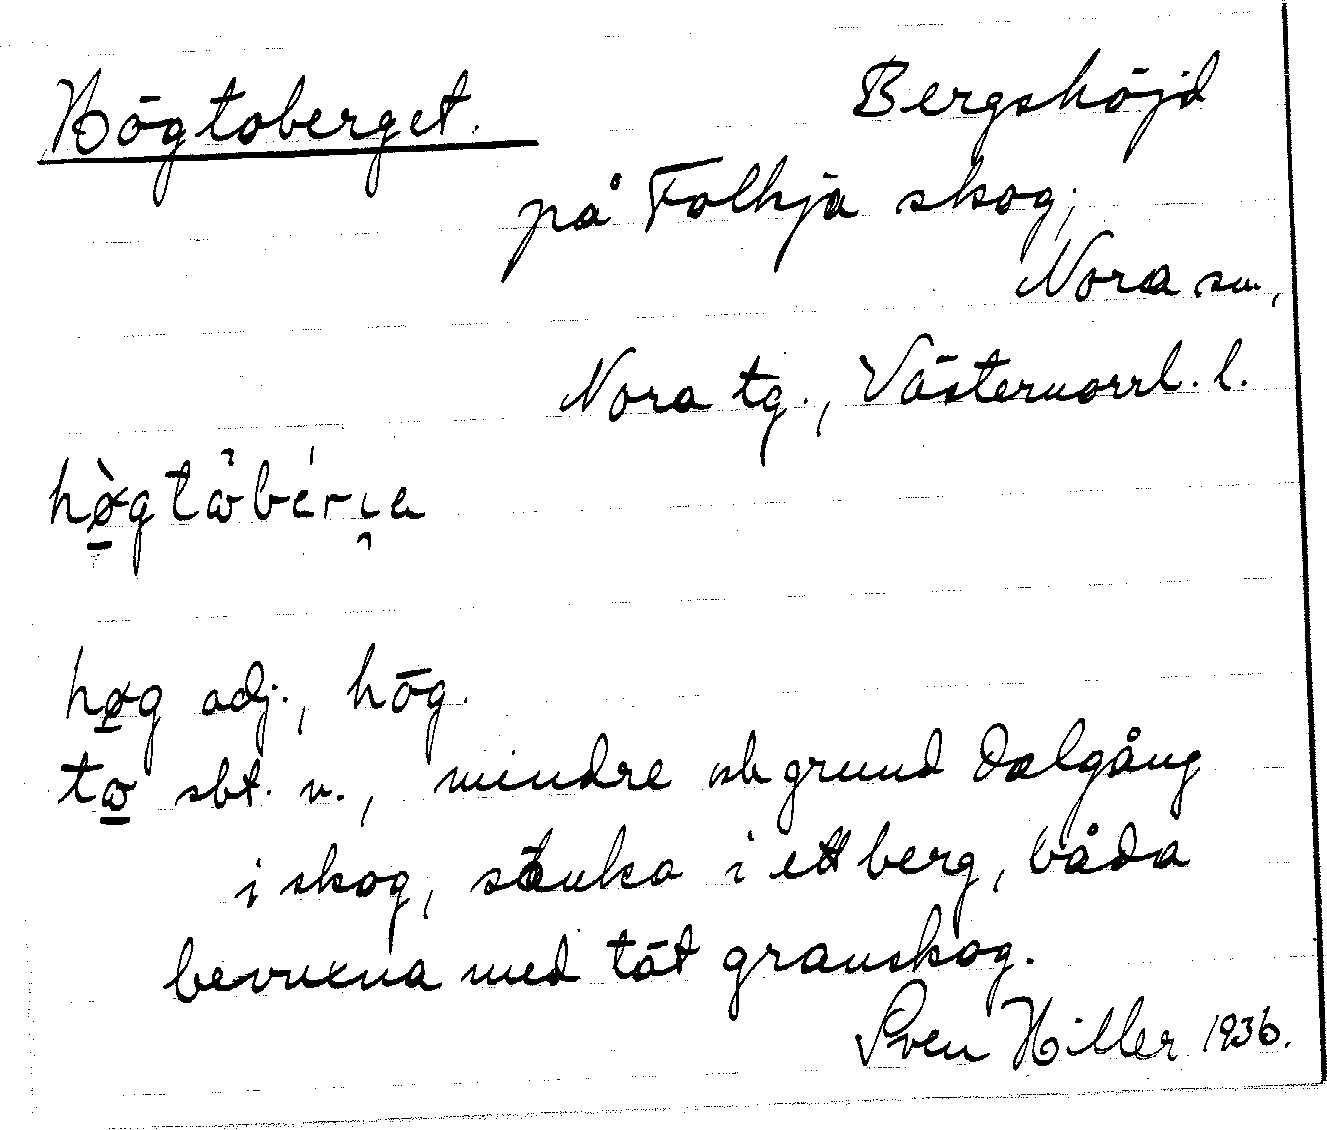 Högtoberget. Bergshöjd
på Folkja skog;
Nora sn,
Nora tg., Västernorrl. l.
hø̀gtωbérɩa
høg adj., hög.
tω sbt. n., mindre och grund dalgång
i skog, sänka i ett berg, båda
bevuxna med tät granskog.
Sven Hiller 1936.